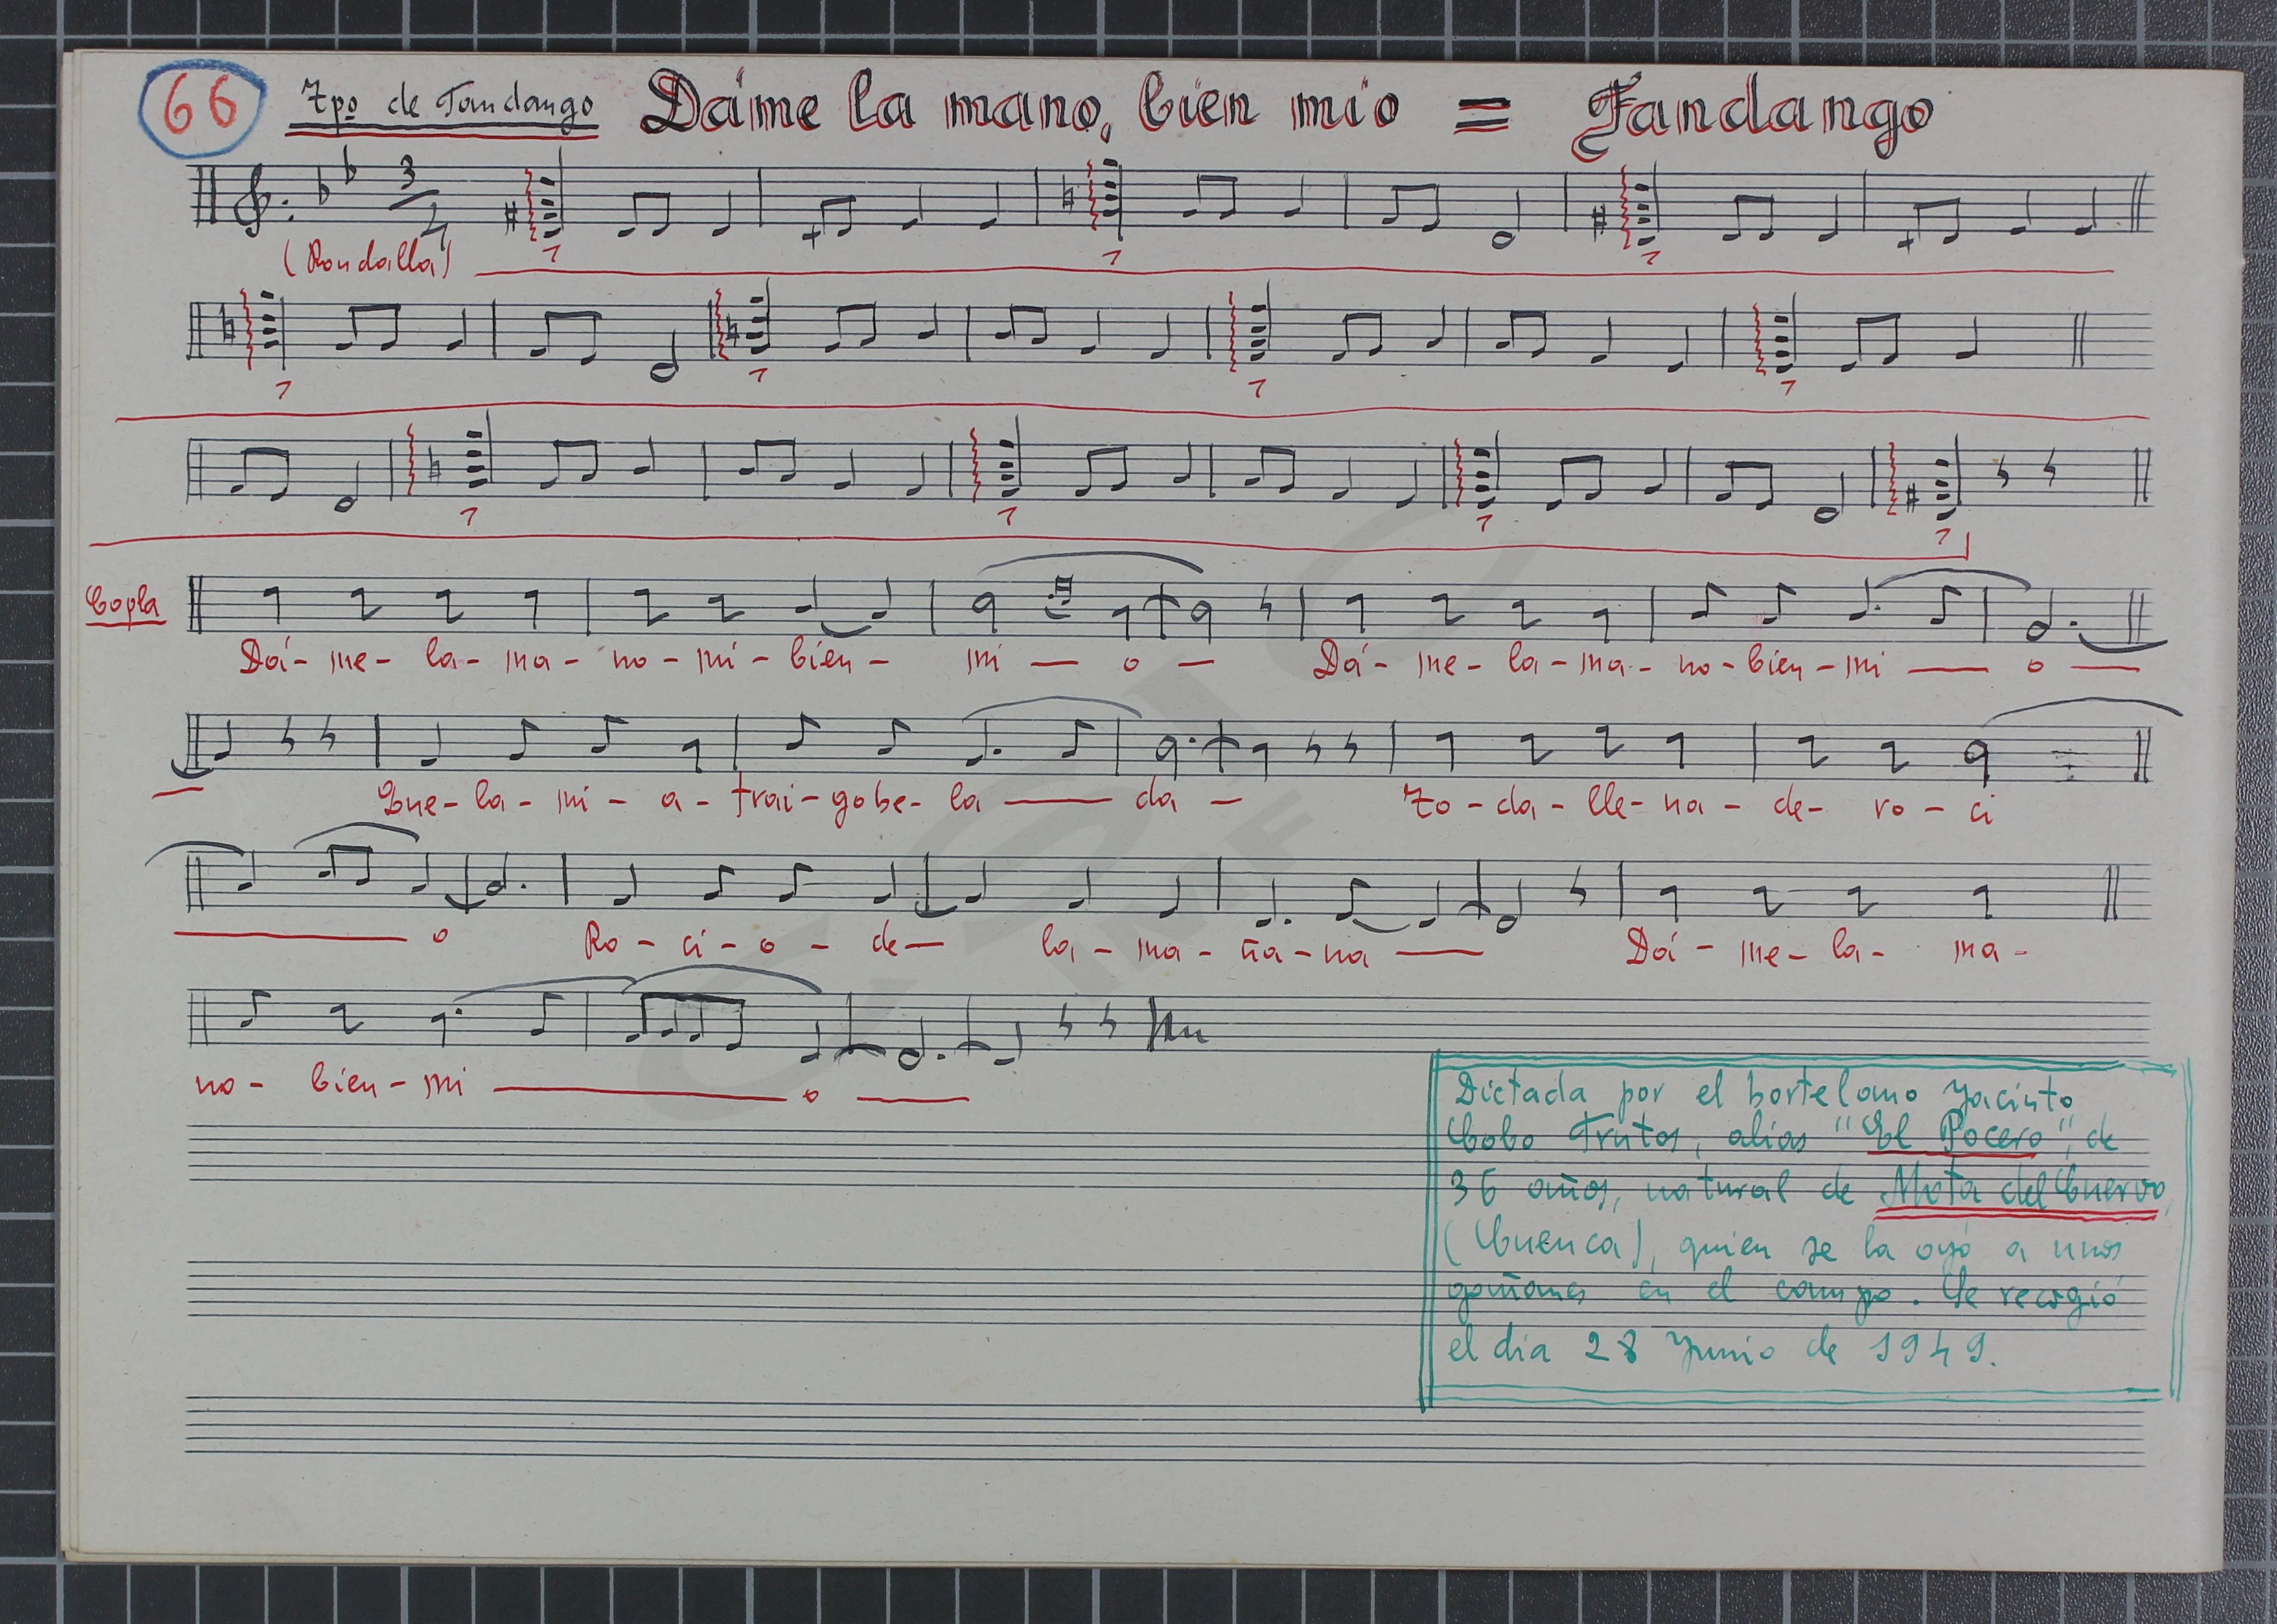 66 Tpo de Fandango Dáme la mano, bien mio = Fandango
3
4
(Rondalla)
Copla
Dá- me- la- ma- no- mi- bien- mi — o — Dá- me- la- ma- no- bien- mi — o —
Que- la- mi- a- trai- go be- la — da — To- da- lle- na- de- ro- ci
— o Ro- ci- o- de- la- ma- ña- na — Dá- me- la- ma-
no- bien- mi — o —
Dictada por el hortelano Jacinto
Cobo Frutos, alias "El Pocero", de
36 años, natural de Mota del Cuervo,
(Cuenca), quien se la oyó a unos
gañanes en el campo. Se recogió
el dia 28 Junio de 1949.
CSIC
IMF